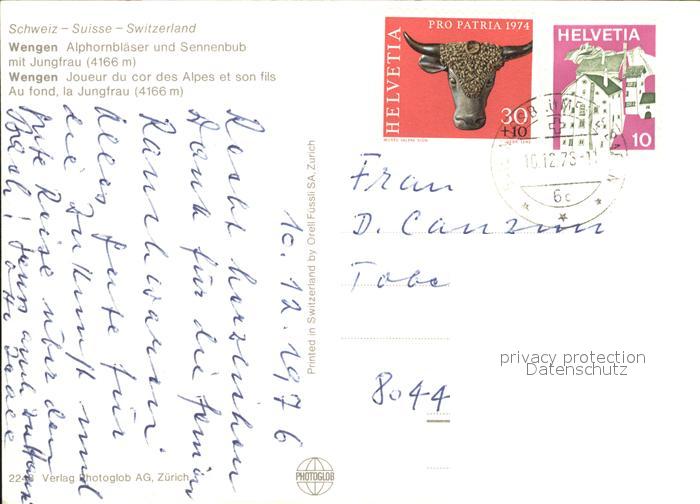 Schweiz – Suisse – Switzerland
Wengen Alphornbläser und Sennenbub
mit Jungfrau (4166 m)
Wengen Joueur du cor des Alpes et son fils
Au fond, la Jungfrau (4166 m)
HELVETIA
PRO PATRIA 1974
30
+10
HELVETIA
10
10.12.76
6c
10.12.1976
Recht herzlichen
Dank für die
Alles Gute für
die Zukunft und
gute Reise über den
Bach!
Printed in Switzerland by Orell Füssli SA, Zürich
Frau
D. Canzun
Tobe
8044
privacy protection
Datenschutz
Verlag Photoglob AG, Zürich
PHOTOGLOB